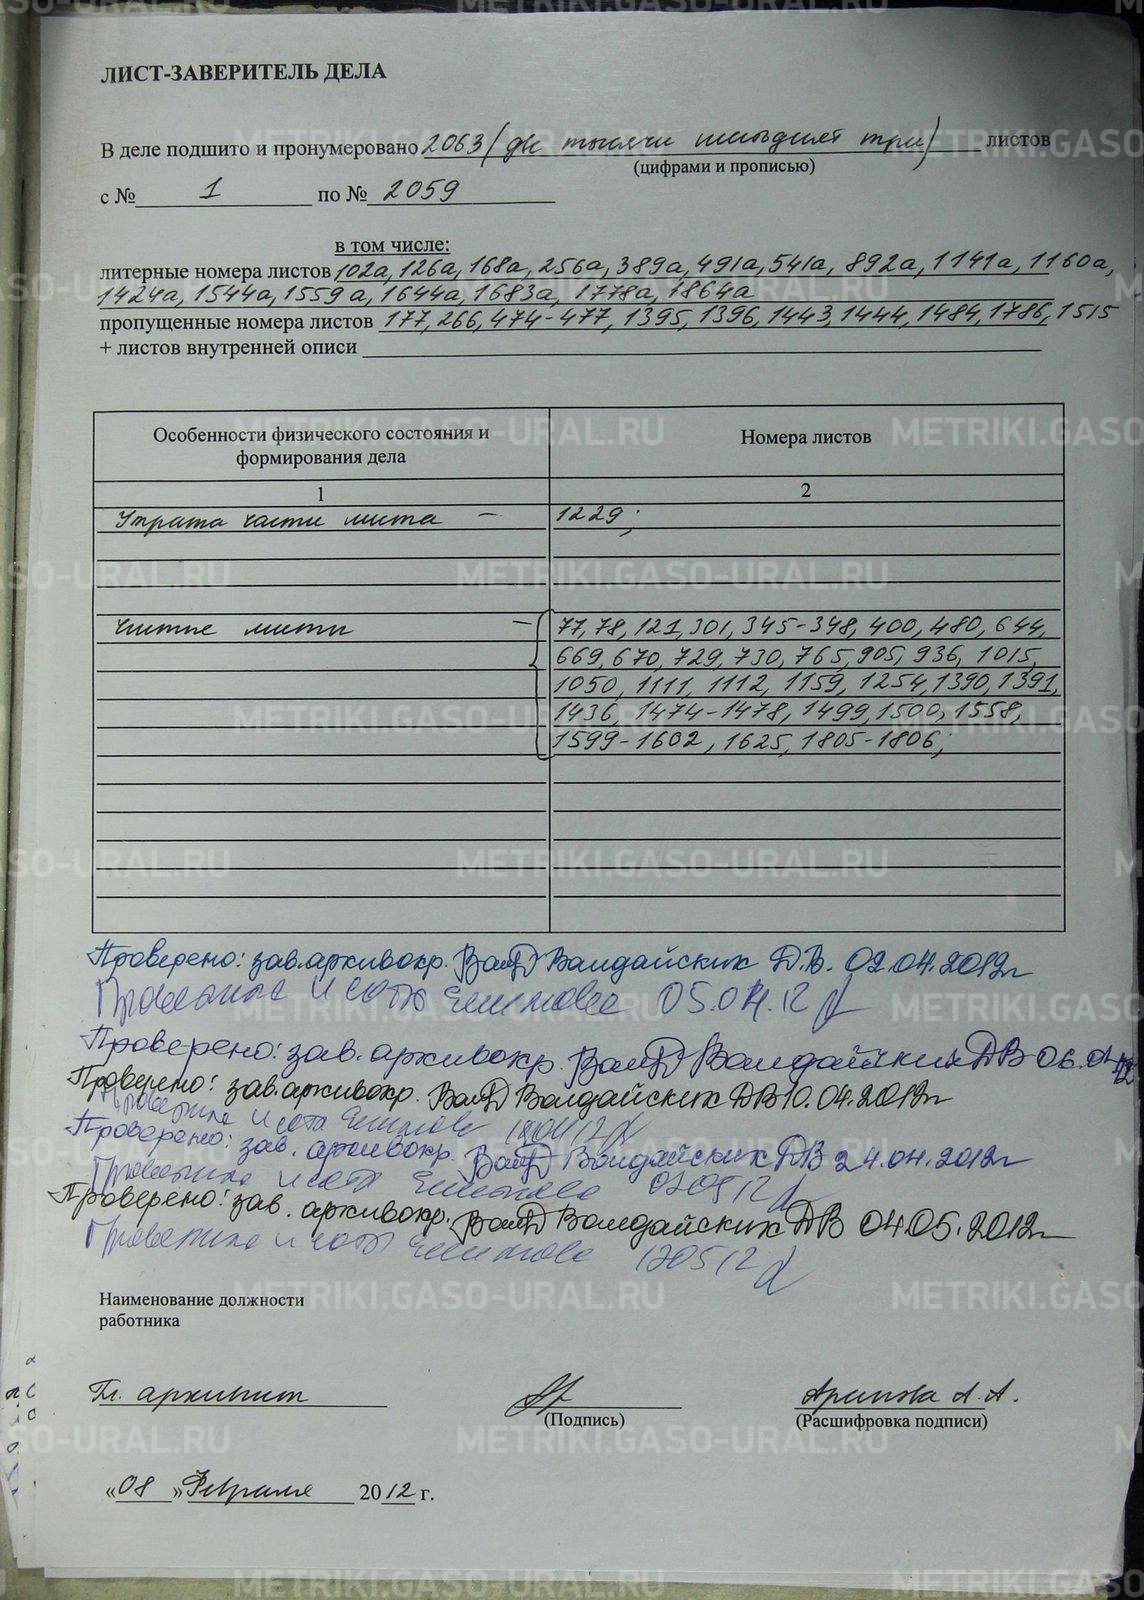 ЛИСТ-ЗАВЕРИТЕЛЬ ДЕЛА
В деле подшито и пронумеровано 2063 (две тысячи шестьдесят три) листов
(цифрами и прописью)
с № 1 по № 2059
в том числе:
литерные номера листов 102а, 126а, 168а, 256а, 389а, 491а, 541а, 892а, 1141а, 1160а,
1424а, 1544а, 1559а, 1644а, 1683а, 1778а, 1864а
пропущенные номера листов 177, 266, 474-477, 1395, 1396, 1443, 1444, 1484, 1786, 1515
+ листов внутренней описи
Особенности физического состояния и
формирования дела
Номера листов
1
2
Утрата части листа - 1229;
Чистые листы - 77, 78, 121, 301, 345-348, 400, 480, 644,
669, 670, 729, 730, 765, 905, 936, 1015,
1050, 1111, 1112, 1159, 1254, 1390, 1391,
1436, 1474-1478, 1499, 1500, 1558,
1599-1602, 1625, 1805-1806;
Проверено: зав.архивохр. Валдайских Д.В. 02.04.2012г
05.04.12
Проверено: зав. архивохр. Валдайских ДВ 06.04.12
Проверено: зав.архивохр. Валдайских ДВ 10.04.2012г
Проверено: зав. архивохр. Валдайских ДВ 24.04.2012г
020512
Проверено: зав. архивохр. Валдайских ДВ 04 05.2012г
120512
Наименование должности
работника
Гл. архивист
(Подпись)
Арапова А. А.
(Расшифровка подписи)
«08» Февраля 2012 г.
METRIKI.GASO-URAL.RU